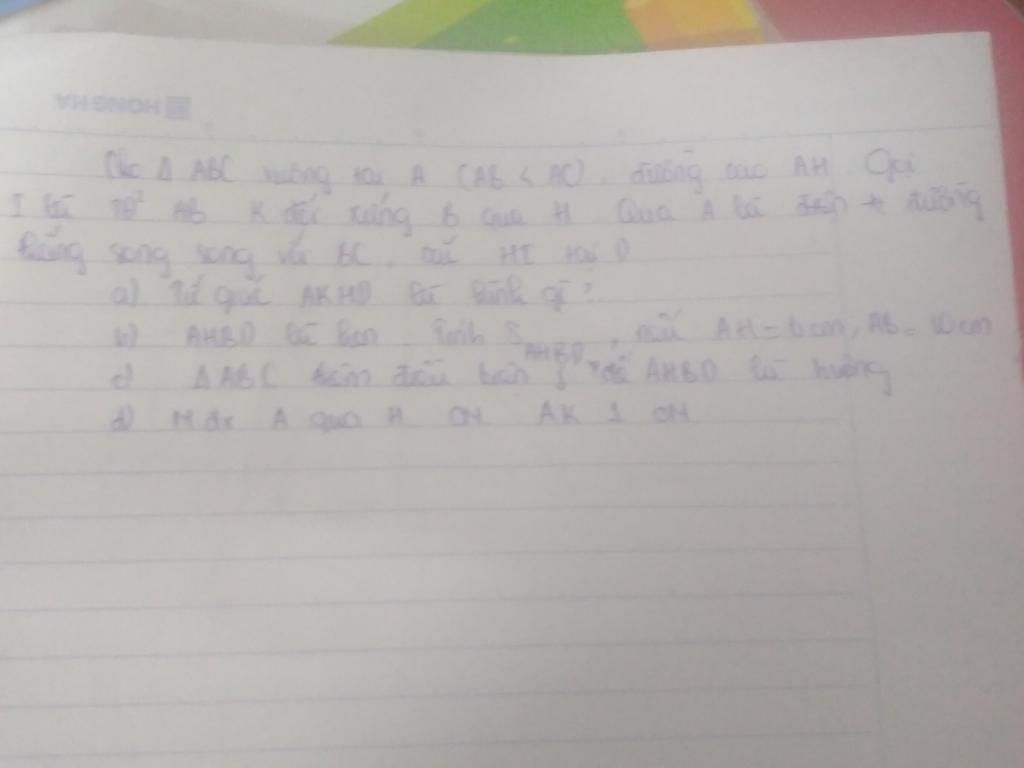 HONG HA
Cho Δ ABC vuông tại A (AB < AC), đường cao AH Gọi
I là AB K đối xứng B qua H Qua A đường
thẳng song song với BC, cắt HI tại D
a) Tứ giác AKHD là hình gì?
b) AHBD là hcn. Tính S AHBD, nếu AH = 6 cm, AB = 10 cm
c) Δ ABC thêm điều kiện gì để AHBD là hvuông
d) M đx A qua H CM AK ⊥ CM